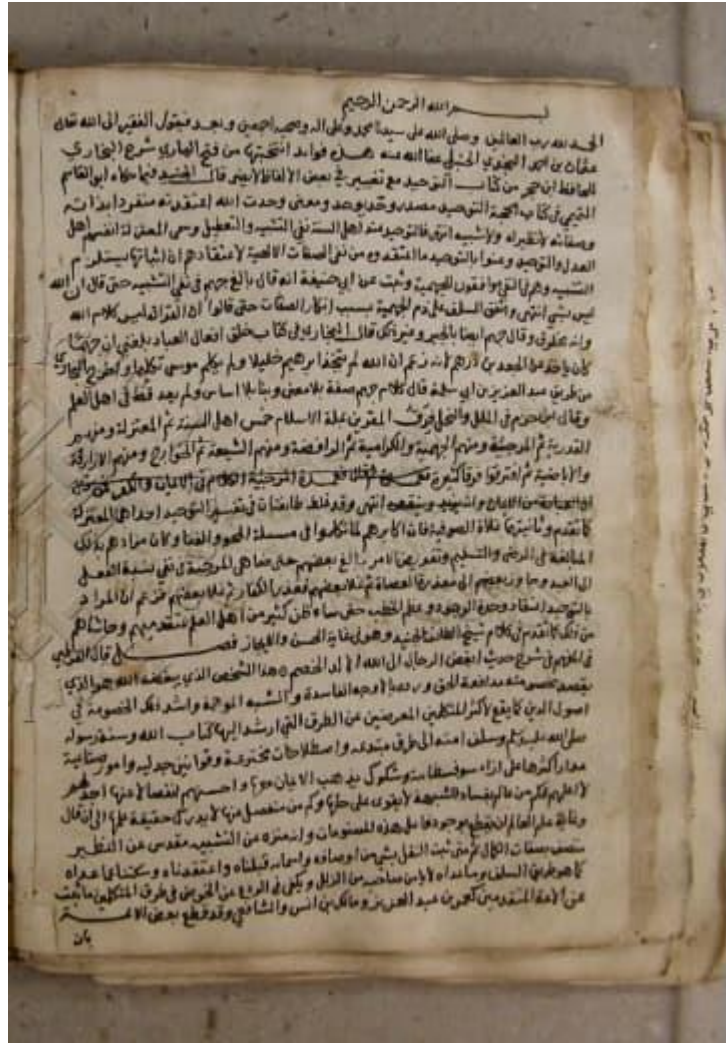 بسم الله الرحمن الرحيم
الحمد لله رب العالمين وصلى الله على سيدنا محمد وعلى اله وصحبه اجمعين وبعد فيقول الفقير الى الله تعالى
عثمان بن احمد النجدي الحنبلي عفا الله عنه هذه فوايد انتخبتها من فتح الباري شرح البخاري
للحافظ ابن حجر من كتاب التوحيد مع تفسير في بعض الالفاظ لا يغير قال الجنيد فيما حكاه ابي القاسم
التيمي في كتاب الحجة التوحيد مصدر وحد يوحد ومعنى وحدت الله اعتقدته منفردا بذاته
وصفاته لا نظير له ولا شبيه انتهى فالتوحيد عند اهل السنة نفي التشبيه والتعطيل وسمى المعتزلة انفسهم اهل
العدل والتوحيد وعنوا بالتوحيد ما اعتقدوه من نفي الصفات الالهية لاعتقادهم ان اثباتها يستلزم
التشبيه وهم في النفي موافقون للجهمية وثبت عن ابي حنيفة انه قال بالغ جهم في نفي التشبيه حتى قال ان الله
ليس بشي انتهى واتفق السلف على ذم الجهمية بسبب انكار الصفات حتى قالوا ان القران ليس كلام الله
وانه مخلوق وقال جهم ايضا بالجبر وغير ذلك قال البخاري في كتاب خلق افعال العباد بلغني ان جهما
كان ياخذ عن الجعد بن درهم انه زعم ان الله لم يتخذ ابرهيم خليلا ولم يكلم موسى تكليما
من طريق عبد العزيز بن ابي سلمة قال كلام جهم صفة بلا معنى وبنا بلا اساس ولم يعد قط في اهل العلم
وقال ابن حزم في الملل والنحل فرق المقرين بملة الاسلام خمس اهل السنة ثم المعتزلة ومنهم
القدرية ثم المرجئة ومنهم الجهمية والكرامية ثم الرافضة ومنهم الشيعة ثم الخوارج ومنهم الازارقة
والاباضية ثم افترقوا فرقا كثيرة
انتهى وقد غلط طائفتان في تفسير التوحيد احداهما المعتزلة
كما تقدم وثانيتهما غلاة الصوفية فان اكابرهم لما تكلموا في مسئلة المحو والفنا وكان مرادهم بذلك
المبالغة في الرضى والتسليم وتفويض الامر بالغ بعضهم حتى ضاهى المرجئة في نفي نسبة الفعل
الى العبد وجاوز بعضهم الى معذرة العصاة ثم غلا بعضهم فعذر الكفار ثم غلا بعضهم فزعم ان المراد
بالتوحيد اعتقاد وحدة الوجود وعظم الخطب حتى ساء ظن كثير من اهل العلم بمتقدميهم وحاشاهم
من ذلك كما تقدم في كلام شيخ الطائفة الجنيد وهو في غاية الحسن والايجاز فصل قال القرطبي
في المفهم في شرح حديث ابغض الرجال الى الله الالد الخصم هذا الشخص الذي يبغضه الله هو الذي
يقصد بخصومته مدافعة الحق ورده بالاوجه الفاسدة والشبه الموهمة واشد ذلك الخصومة في
اصول الدين كما يقع لاكثر المتكلمين المعرضين عن الطرق التي ارشد اليها كتاب الله وسنة رسوله
صلى الله عليه وسلم وسلف امته الى طرق مبتدعة واصطلاحات مخترعة وقوانين جدلية وامور صناعية
مدار اكثرها على اراء سوفسطائية
وشكوك يذهب الايمان معها واحسنهم انفصالا عنها اجدلهم
لا اعلمهم فكم من عالم بفساد الشبهة لا يقوى على حلها وكم من منفصل عنها لا يدرك حقيقة علمها الى ان قال
وغاية علم العالم ان يقطع بوجود فاعل هذه المصنوعات وانه منزه عن التشبيه مقدس عن النظير
متصف بصفات الكمال ثم متى ثبت النقل بشي من اوصافه واسمائه قبلناه واعتقدناه وسكتنا عما عداه
كما هو طريق السلف وما عداه لا يامن صاحبه من الزلل ويكفي في الردع عن الخوض في طرق المتكلمين ما ثبت
عن الائمة المتقدمين كعمر بن عبد العزيز ومالك بن انس والشافعي وقد قطع بعض الائمة
بان